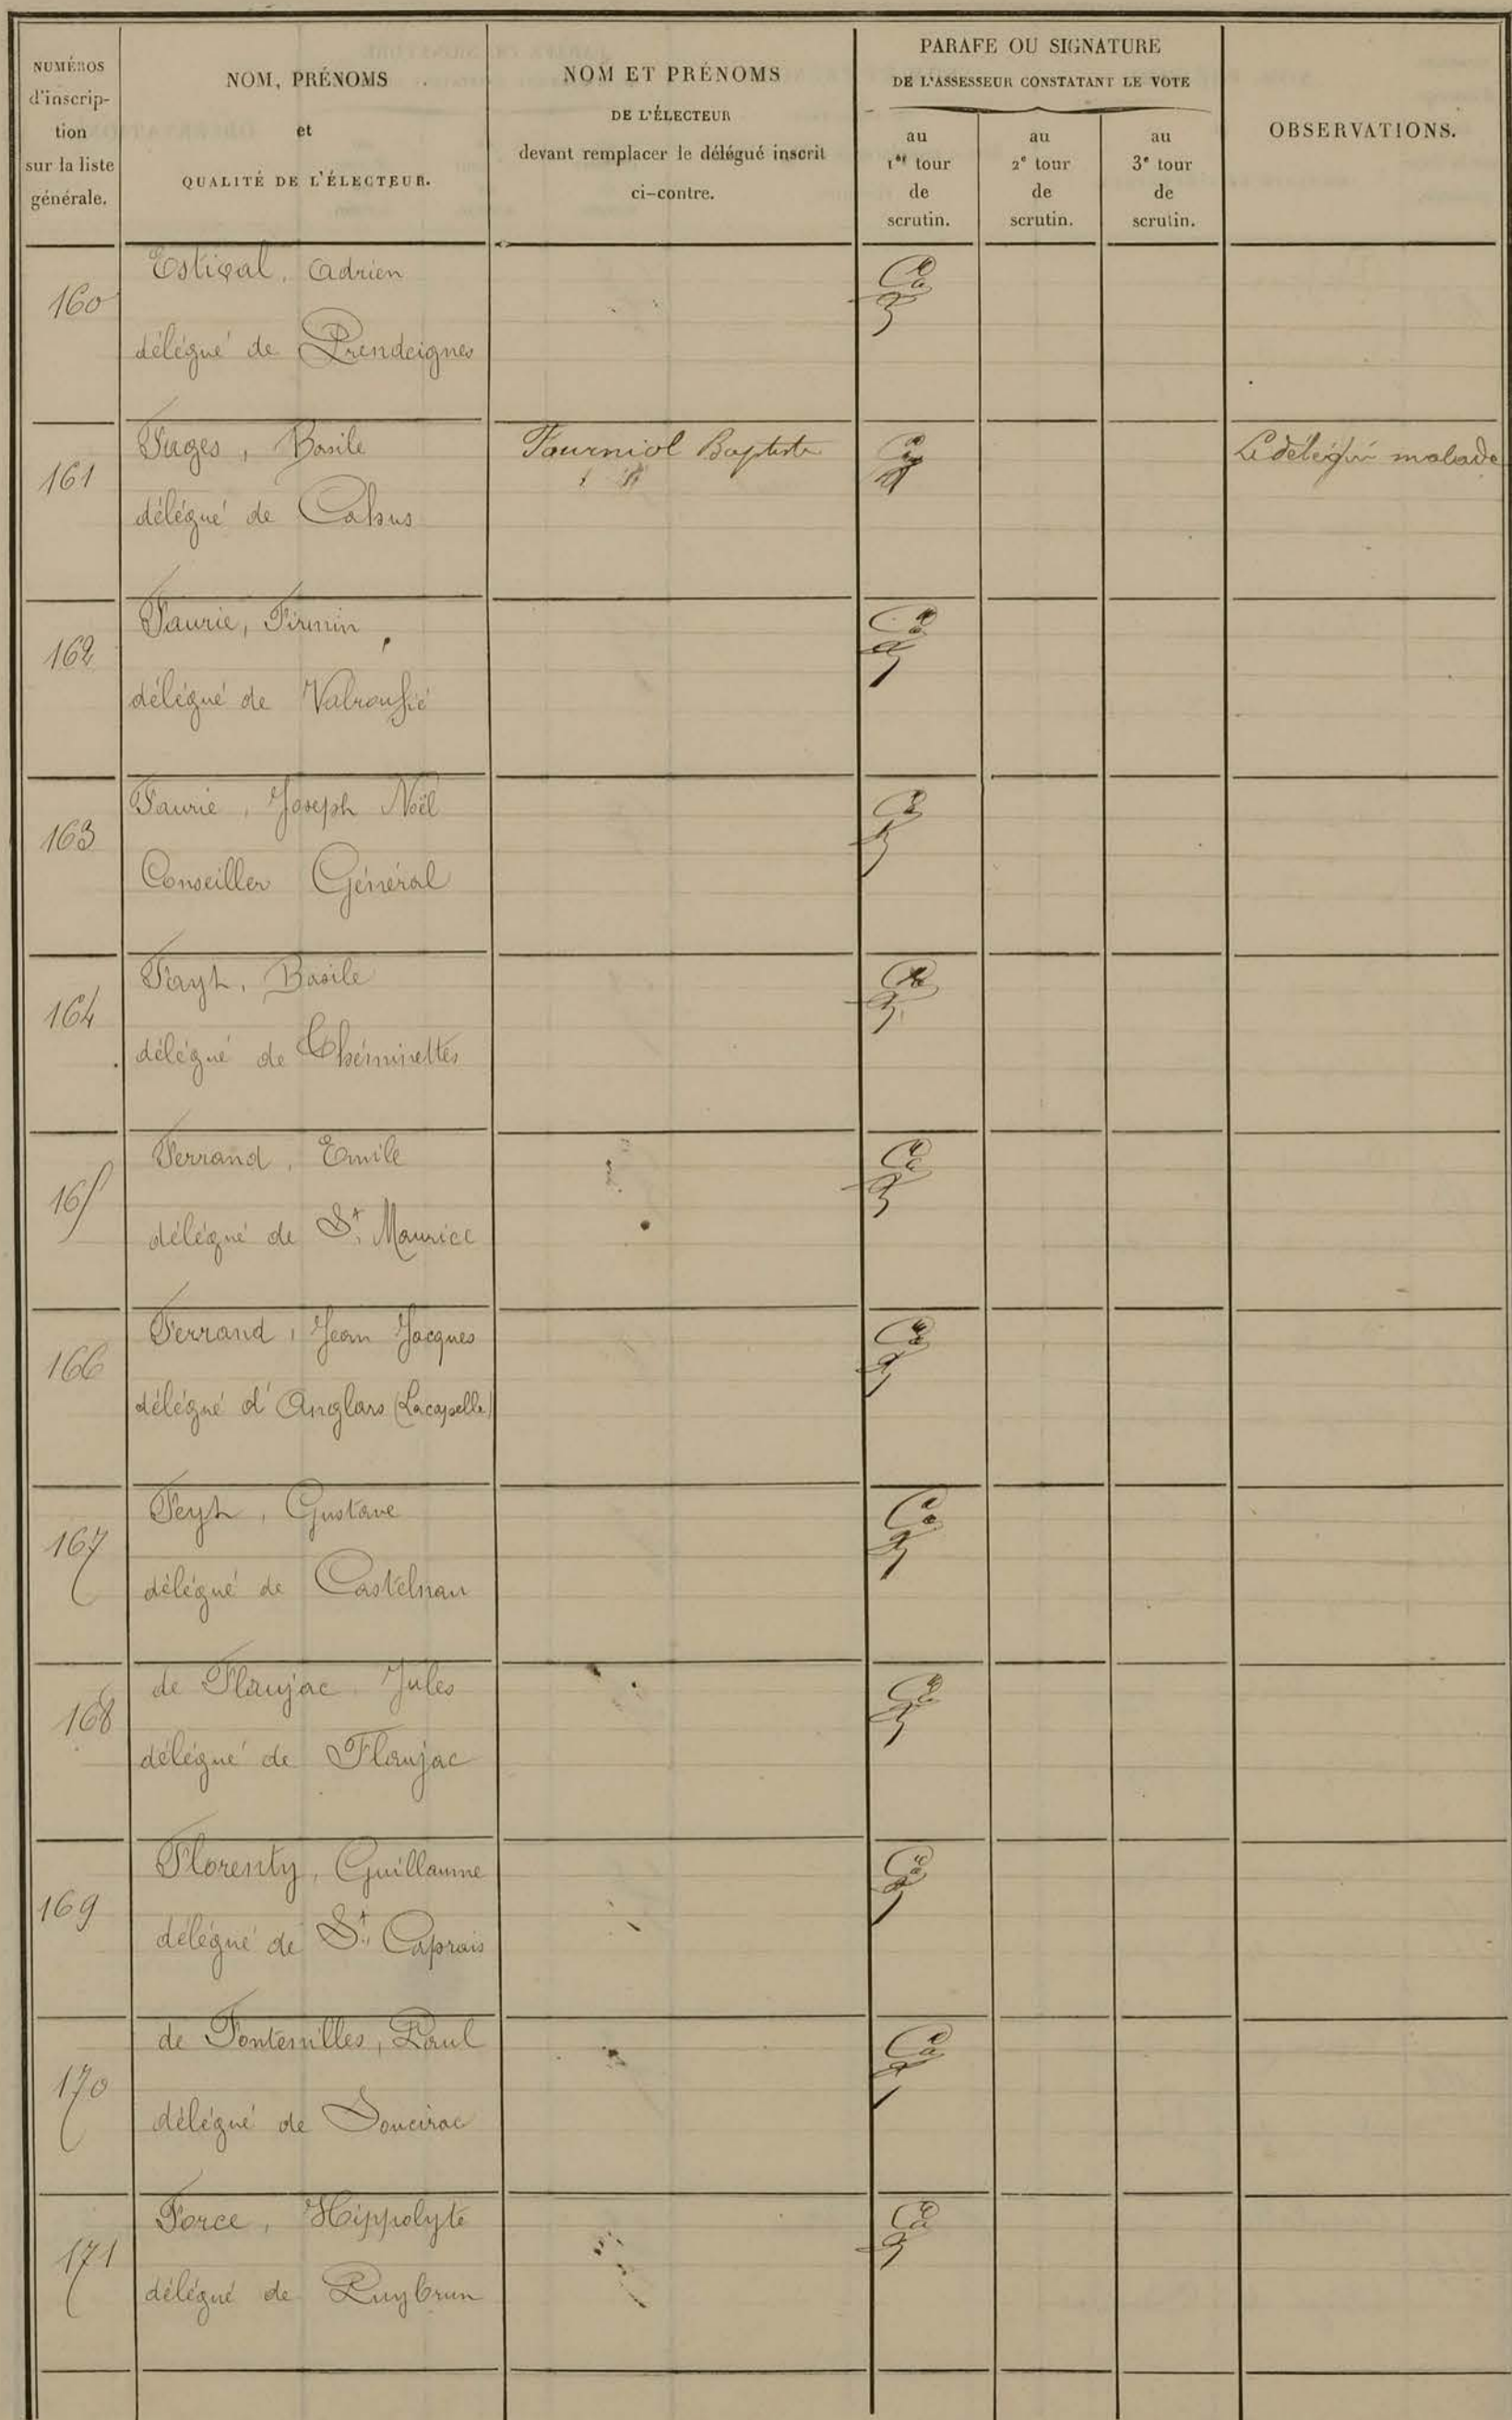 NUMÉROS
d'inscrip-
tion
sur la liste
générale.
NOM, PRÉNOMS
et
QUALITÉ DE L'ÉLECTEUR.
NOM ET PRÉNOMS
DE L'ÉLECTEUR
devant remplacer le délégué inscrit
ci-contre.
PARAFE OU SIGNATURE
DE L'ASSESSEUR CONSTATANT LE VOTE
au
1er tour
de
scrutin.
au
2e tour
de
scrutin.
au
3e tour
de
scrutin.
OBSERVATIONS.
160
Estival, Adrien
délégué de Prendeignes
161
Fages, Basile
délégué de Cahus
Fourniol Baptiste
Le délégué malade
162
Faurie, Firmin
délégué de Valroufié
163
Faurie, Joseph Noël
Conseiller Général
164
Fayt, Basile
délégué de Théminettes
165
Ferrand, Emile
délégué de St Maurice
166
Ferrand, Jean Jacques
délégué d'Anglars (Lacapelle)
167
Feyt, Gustave
délégué de Castelnau
168
de Flaujac Jules
délégué de Flaujac
169
Florenty, Guillaume
délégué de St Caprais
170
de Fontenilles, Paul
délégué de Soucirac
171
Force, Hippolyte
délégué de Puybrun